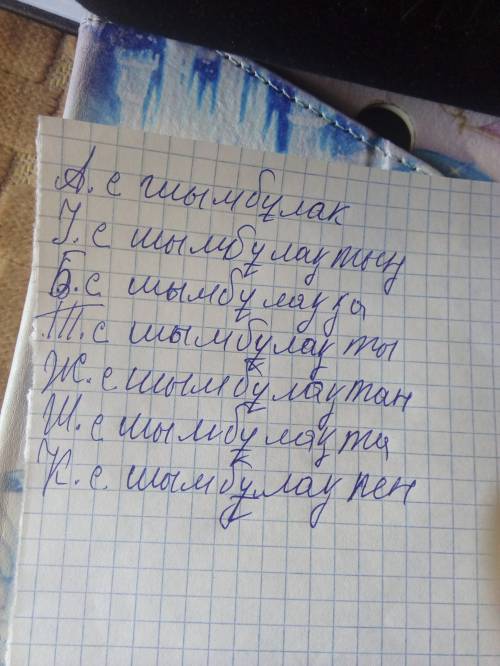 А. с шымбұлак
І. с шымбұлақтың
Б. с шымбұлаққа
Т. с шымбұлақты
Ж. с шымбұлақтан
Ш. с шымбұлақта
К. с. шымбұлақпен